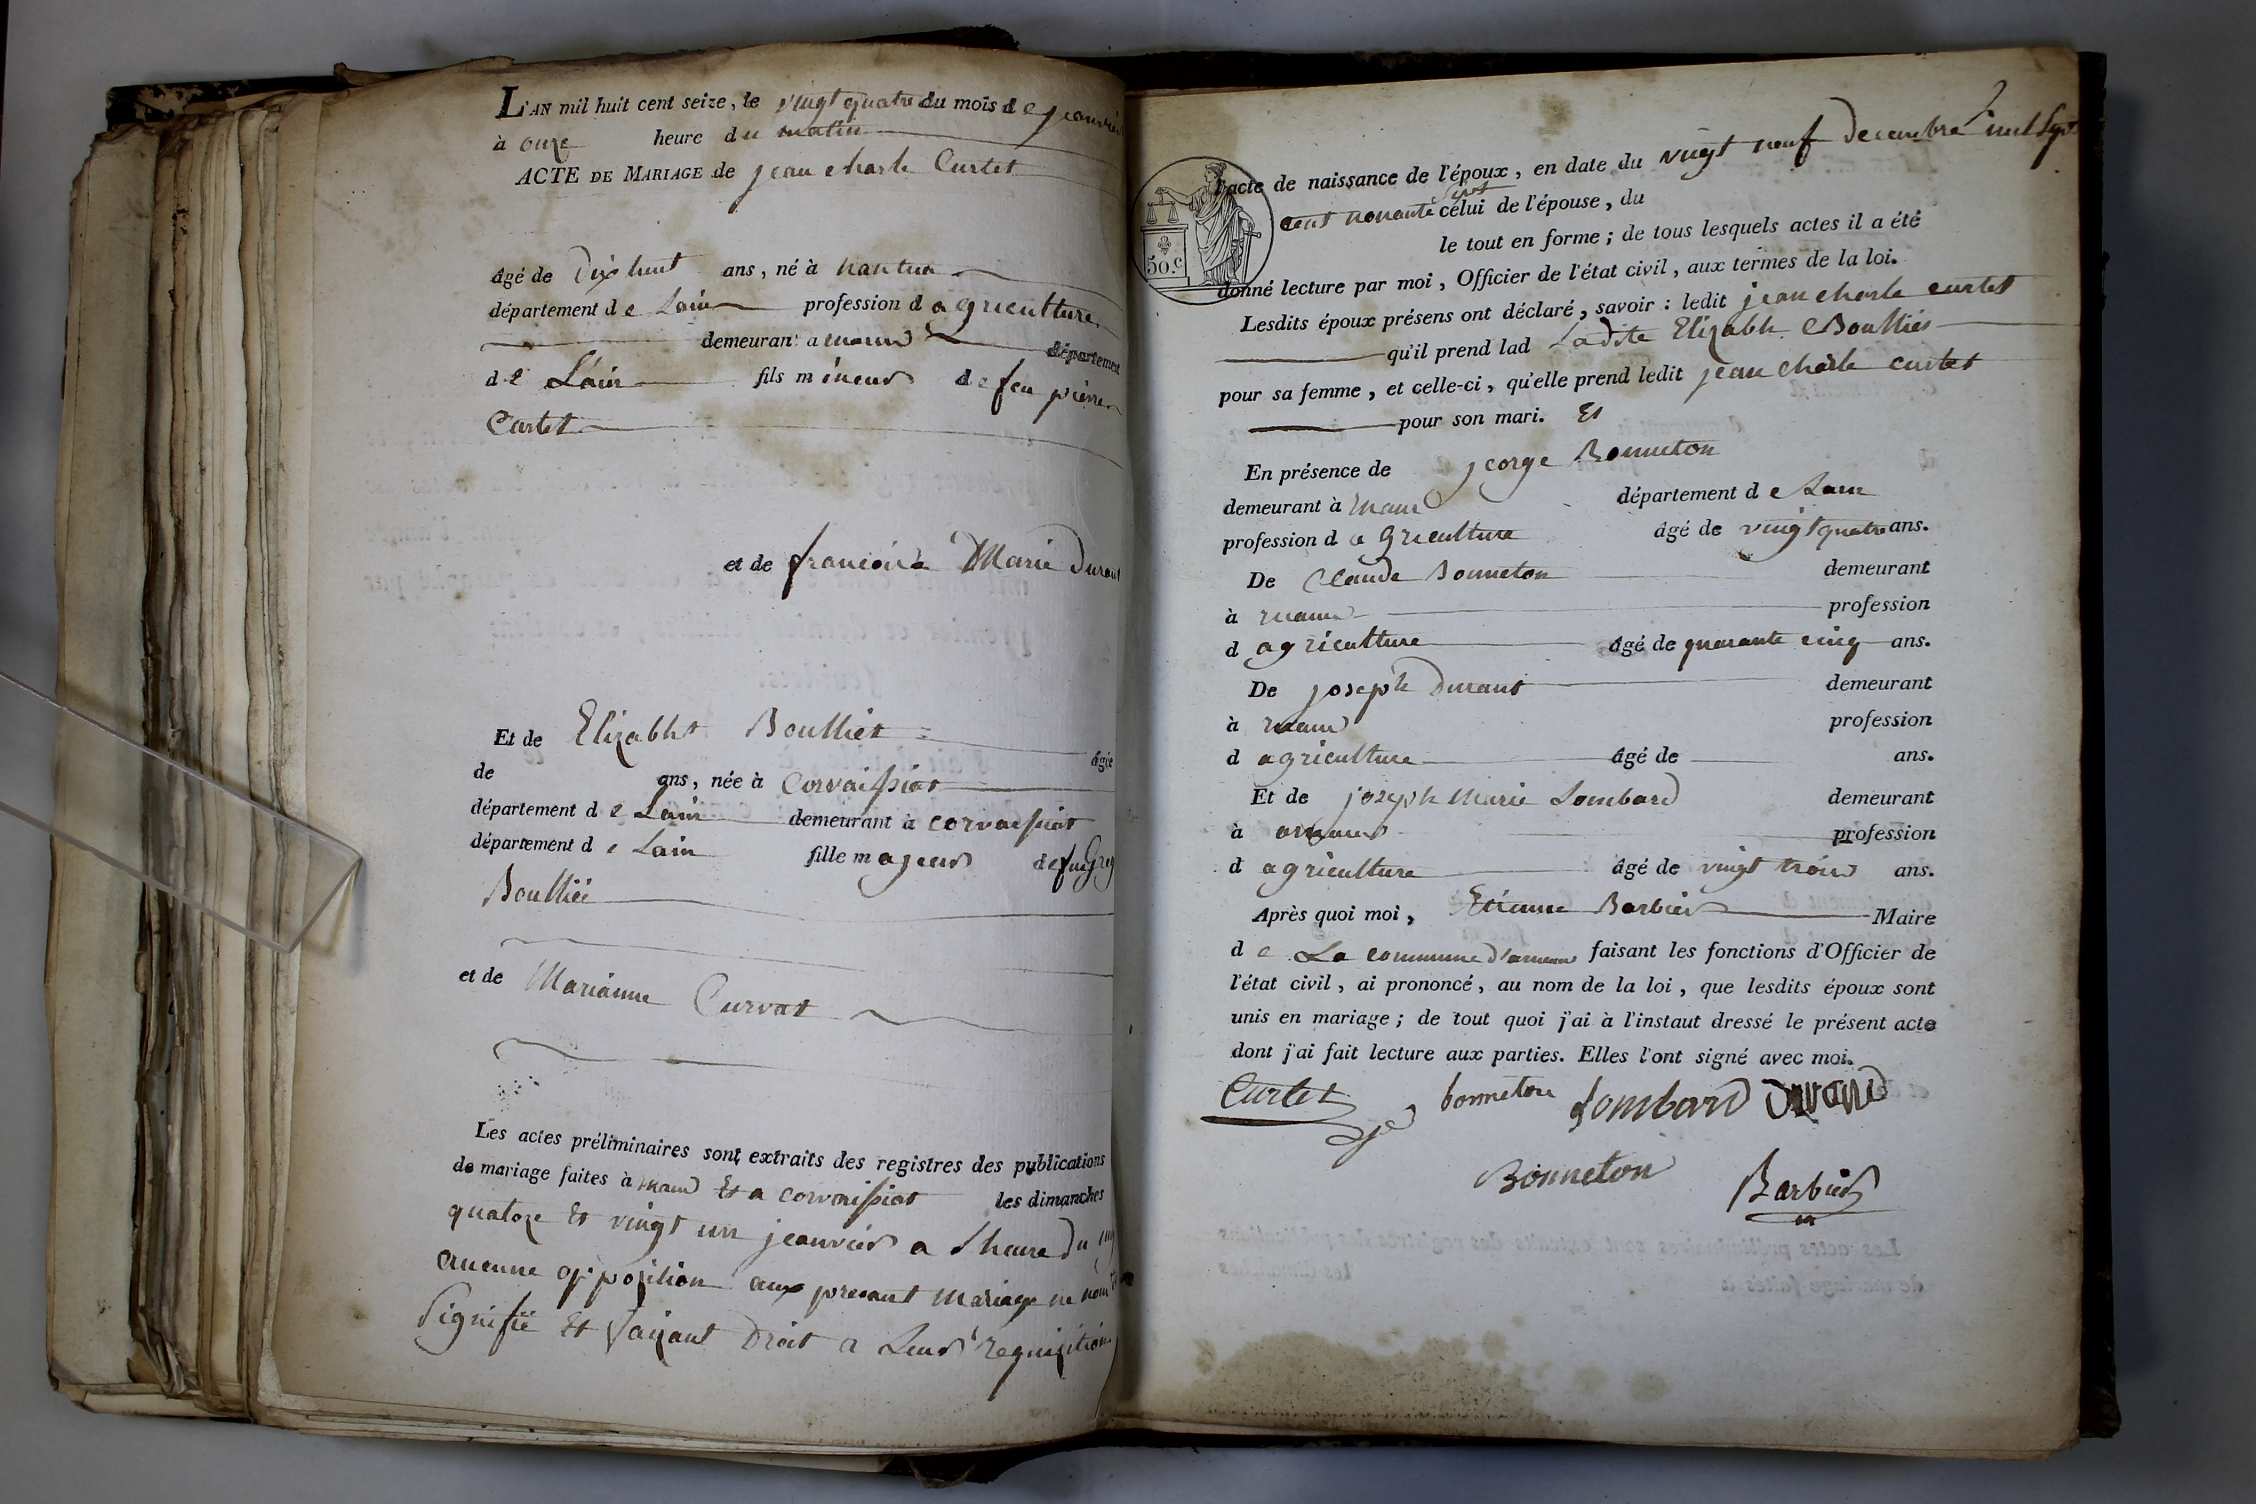 L'AN mil huit cent seize, le vingt quatre du mois de jeanvier
à onze heure du matin
ACTE DE MARIAGE de jean charle Curtet
âgé de Dix huit ans, né à nantua
département de Lain profession d agriculture
demeurant a département
de L'ain fils mineur de feu pierre
Curtet
et de francoise Marie Durant
Et de Elizabht Boullier âgée
de ans, née à Corvaissiat
département de Lain demeurant à corvaissiat
département de Lain fille majeur de feu
Boullier
et de Marianne Curvat
Les actes préliminaires sont extraits des registres des publications
de mariage faites à Et a corvaissiat les dimanches
quatoze Et vingt un jeanvier a l'heure du
aucunne opposition aux presant mariage ne
Signifié Et faisant Droit a Leur requisition
l'acte de naissance de l'époux, en date du vingt neuf decembre mil Sept
cent nonante sept celui de l'épouse, du
le tout en forme; de tous lesquels actes il a été
50.c
donné lecture par moi, Officier de l'état civil, aux termes de la loi.
Lesdits époux présens ont déclaré, savoir: ledit jean charle curtet
qu'il prend lad Ladite Elizabh Boullier
pour sa femme, et celle-ci, qu'elle prend ledit jean charle curtet
pour son mari. Et
En présence de jeorge Bonneton
demeurant à département de Lain
profession d agriculture âgé de vingt quatre ans.
De Claude Bonneton demeurant
à profession
d agriculture âgé de quarante cinq ans.
De joseph Durant demeurant
à profession
d agriculture âgé de ans.
Et de joseph Marie Lombard demeurant
à profession
d agriculture âgé de vingt trois ans.
Après quoi moi, Etienne Barbier Maire
de La commune faisant les fonctions d'Officier de
l'état civil, ai prononcé, au nom de la loi, que lesdits époux sont
unis en mariage; de tout quoi j'ai à l'instaut dressé le présent acte
dont j'ai fait lecture aux parties. Elles l'ont signé avec moi.
Curtet bonneton Lombard Durand
Bonneton Barbier